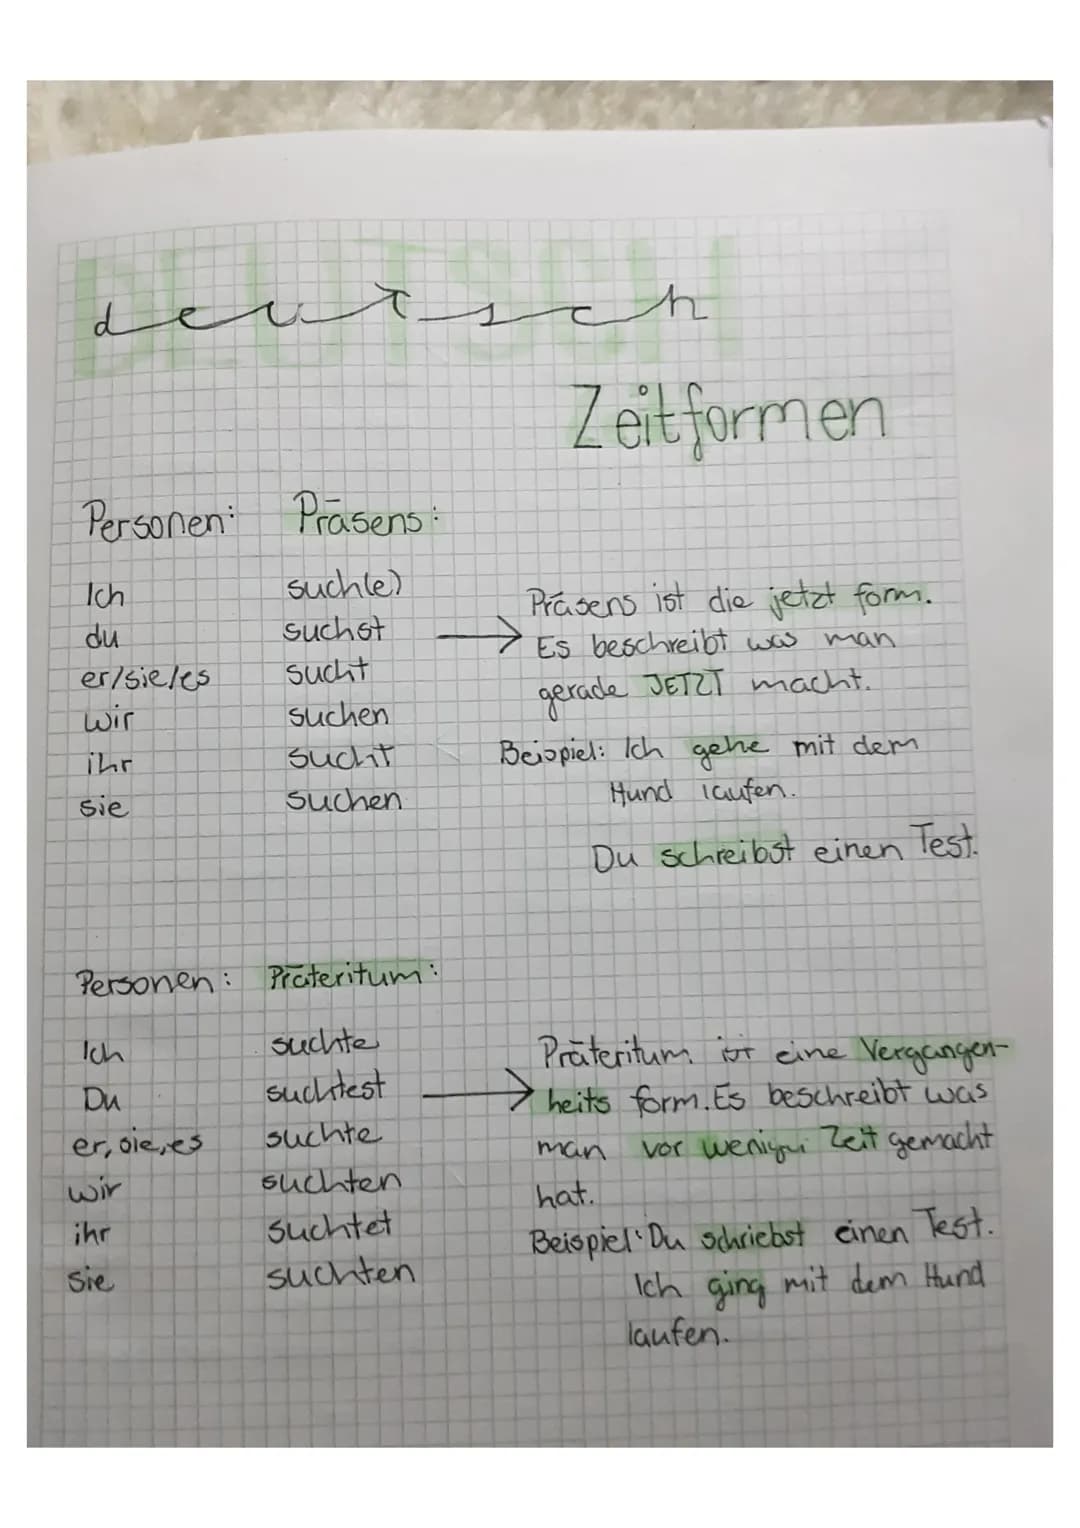 DEUTSCH
deutsch
Zeitformen
Personen: Präsens:
Ich such(e)
du suchst
er/sie/es sucht
wir suchen
ihr sucht
sie suchen
→ Präsens ist die jetzt form.
Es beschreibt was man
gerade JETZT macht.
Beispiel: Ich gehe mit dem
Hund laufen.
Du schreibst einen Test.
Personen: Präteritum:
Ich suchte
Du suchtest
er, sie, es suchte
wir suchten
ihr suchtet
sie suchten
→ Präteritum ist eine Vergangen-
heits form. Es beschreibt was
man vor weniger Zeit gemacht
hat.
Beispiel: Du schriebst einen Test.
Ich ging mit dem Hund
laufen.